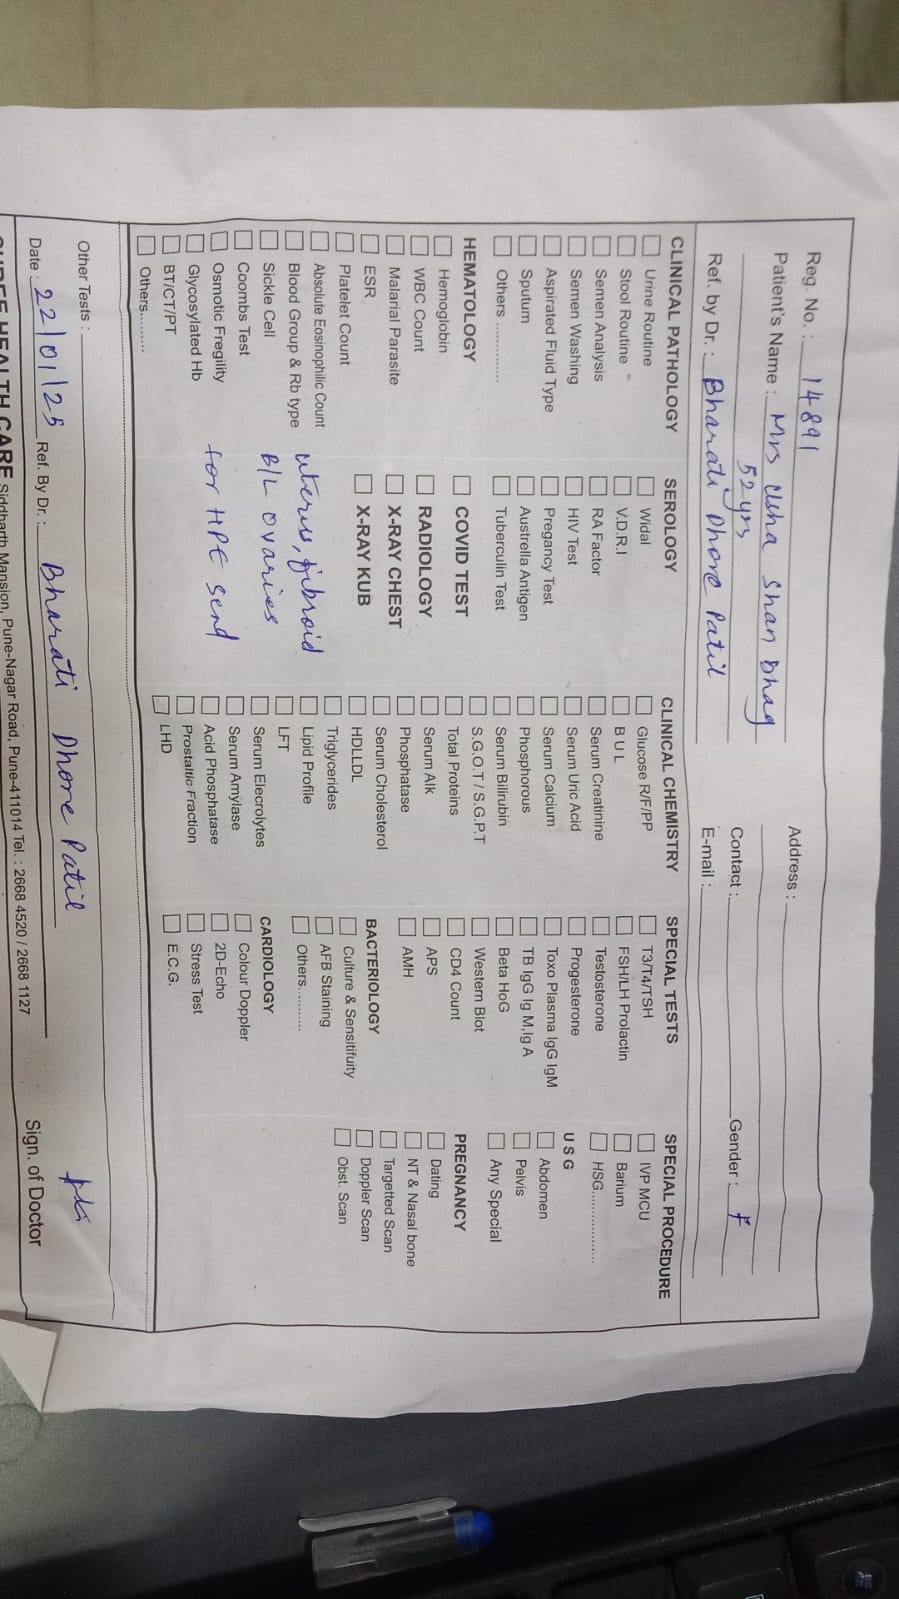 Reg. No. : 14891
Patient's Name : Mrs Usha Shan Bhag
52yrs
Ref. by Dr. : Bharati Dhore Patil
Address :
Contact :
Gender : F
E-mail :
CLINICAL PATHOLOGY
Urine Routine
Stool Routine
Semen Analysis
Semen Washing
Aspirated Fluid Type
Sputum
Others .............
HEMATOLOGY
Hemoglobin
WBC Count
Malarial Parasite
ESR
Platelet Count
Absolute Eosinophilic Count
Blood Group & Rb type
Sickle Cell
Coombs Test
Osmotic Fregility
Glycosylated Hb
BT/CT/PT
Others.........
SEROLOGY
Widal
V.D.R.I
RA Factor
HIV Test
Pregancy Test
Austrella Antigen
Tuberculin Test
COVID TEST
RADIOLOGY
X-RAY CHEST
X-RAY KUB
uterus, fibroid
B/L ovaries
for HPE send
CLINICAL CHEMISTRY
Glucose R/F/PP
B U L
Serum Creatinine
Serum Uric Acid
Serum Calcium
Phosphorous
Serum Bilirubin
S.G.O.T / S.G.P.T
Total Proteins
Serum Alk
Phosphatase
Serum Cholesterol
HDLLDL
Triglycerides
Lipid Profile
LFT
Serum Elecrolytes
Serum Amylase
Acid Phosphatase
Prostaltic Fraction
LHD
SPECIAL TESTS
T3/T4/TSH
FSH/LH Prolactin
Testosterone
Progesterone
Toxo Plasma IgG IgM
TB IgG Ig M,Ig A
Beta HoG
Western Blot
CD4 Count
APS
AMH
BACTERIOLOGY
Culture & Sensitifuity
AFB Staining
Others...........
CARDIOLOGY
Colour Doppler
2D-Echo
Stress Test
E.C.G.
SPECIAL PROCEDURE
IVP MCU
Barium
HSG.................
U S G
Abdomen
Pelvis
Any Special
PREGNANCY
Dating
NT & Nasal bone
Targetted Scan
Doppler Scan
Obst. Scan
Other Tests :
Date : 22/01/25 Ref. By Dr. : Bharati Dhore Patil
Sign. of Doctor
HEALTH CARE Siddharth Mansion, Pune-Nagar Road, Pune-411014 Tel. : 2668 4520 / 2668 1127